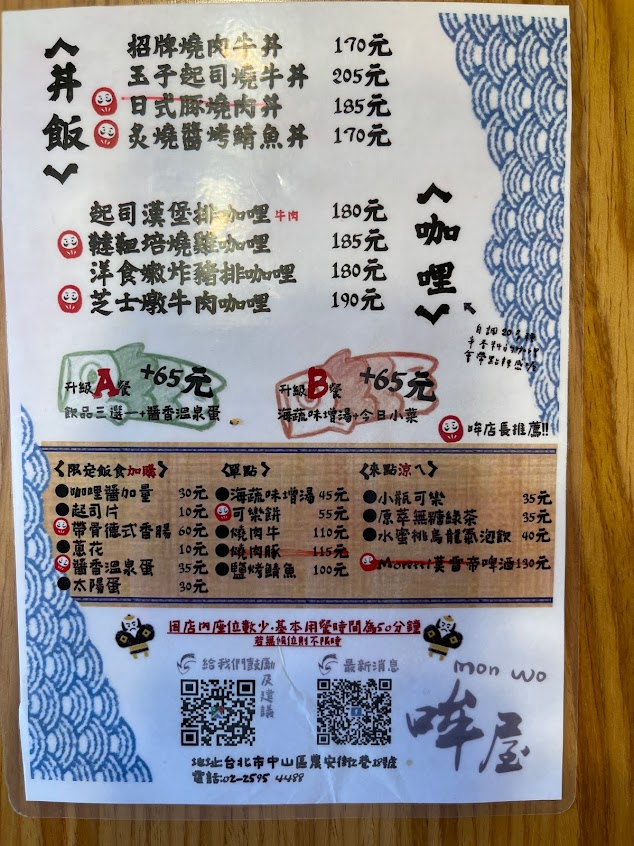 丼飯
招牌燒肉牛丼 170元
玉子起司燒牛丼 205元
日式豚燒肉丼 185元
炙燒醬烤鯖魚丼 170元
咖哩
起司漢堡排咖哩 牛肉 180元
韃靼培燒雞咖哩 185元
洋食嫩炸豬排咖哩 180元
芝士燉牛肉咖哩 190元
自調20多種
會帶點辣感哈
升級A餐 +65元
飲品三選一+醬香溫泉蛋
升級B餐 +65元
海蔬味增湯+今日小菜
哞店長推薦!!
限定飯食加購
咖哩醬加量 30元
起司片 10元
帶骨德式香腸 60元
蔥花 10元
醬香溫泉蛋 35元
太陽蛋 30元
單點
海蔬味增湯 45元
可樂餅 55元
燒肉牛 110元
燒肉豚 115元
鹽烤鯖魚 100元
來點涼ㄟ
小瓶可樂 35元
原萃無糖綠茶 35元
水蜜桃烏龍氣泡飲 40元
Moretti莫雷帝啤酒 130元
因店內座位數少,基本用餐時間為50分鐘
若無候位則不限時
給我們鼓勵及建議
最新消息
mon wo
哞屋
地址:台北市中山區農安街2巷18號
電話:02-2595 4488